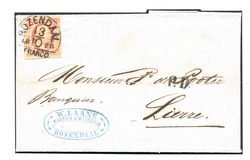 ROZENDAAL
13
10
FRANCO
Monsieur P. de Porter
P.D.
Banquier.
Lierre.
W. LAANE
ROSENDAAL